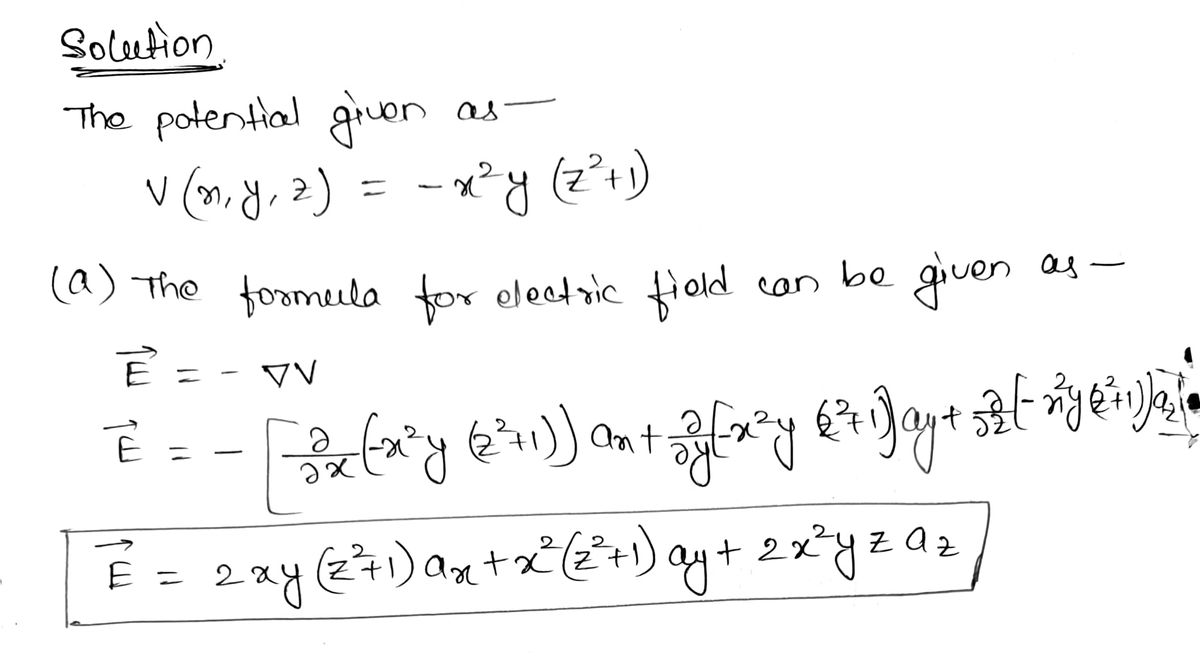 Solution.
The potential given as —
V (x, y, z) = - x²y (z²+1)
(a) The formula for electric field can be given as —
E⃗ = - ∇V
E⃗ = - [∂/∂x (-x²y (z²+1)) ax + ∂/∂y (-x²y (z²+1)) ay + ∂/∂z (-x²y (z²+1)) az]
E⃗ = 2xy (z²+1) ax + x² (z²+1) ay + 2x²y z az